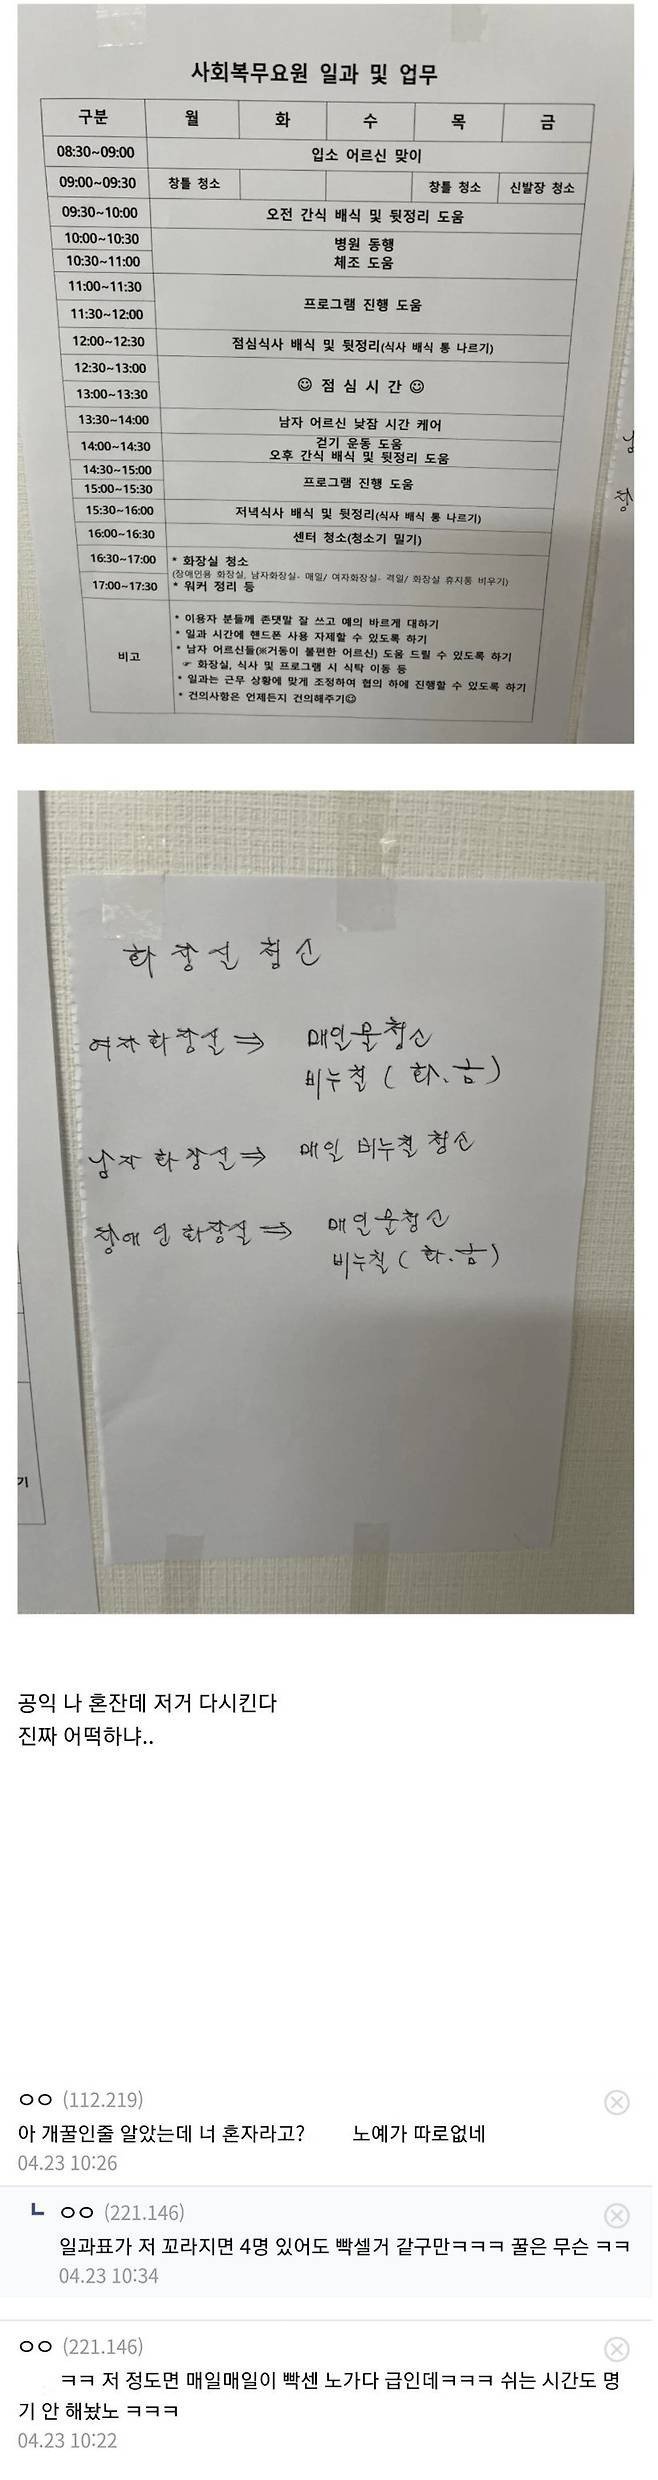 사회복무요원 일과 및 업무
구분 월 화 수 목 금
08:30~09:00 입소 어르신 맞이
09:00~09:30 창틀 청소 창틀 청소 신발장 청소
09:30~10:00 오전 간식 배식 및 뒷정리 도움
10:00~10:30 병원 동행
10:30~11:00 체조 도움
11:00~11:30
프로그램 진행 도움
11:30~12:00
12:00~12:30 점심식사 배식 및 뒷정리(식사 배식 통 나르기)
12:30~13:00
☺ 점 심 시 간 ☺
13:00~13:30
13:30~14:00 남자 어르신 낮잠 시간 케어
14:00~14:30 걷기 운동 도움
오후 간식 배식 및 뒷정리 도움
14:30~15:00
프로그램 진행 도움
15:00~15:30
15:30~16:00 저녁식사 배식 및 뒷정리(식사 배식 통 나르기)
16:00~16:30 센터 청소(청소기 밀기)
16:30~17:00 * 화장실 청소
(장애인용 화장실, 남자화장실- 매일/ 여자화장실- 격일/ 화장실 휴지통 비우기)
17:00~17:30 * 워커 정리 등
* 이용자 분들께 존댓말 잘 쓰고 예의 바르게 대하기
* 일과 시간에 핸드폰 사용 자제할 수 있도록 하기
비고 * 남자 어르신들(※거동이 불편한 어르신) 도움 드릴 수 있도록 하기
☞ 화장실, 식사 및 프로그램 시 식탁 이동 등
* 일과는 근무 상황에 맞게 조정하여 협의 하에 진행할 수 있도록 하기
* 건의사항은 언제든지 건의해주기☺
남
장
화장실 청소
여자화장실 ⇒ 매일물청소
비누칠 (화.금)
남자 화장실 ⇒ 매일 비누칠 청소
장애인 화장실 ⇒ 매일물청소
비누칠 (화.금)
기
공익 나 혼잔데 저거 다시킨다
진짜 어떡하냐..
ㅇㅇ (112.219)
아 개꿀인줄 알았는데 너 혼자라고? 노예가 따로없네
04.23 10:26
ㅇㅇ (221.146)
일과표가 저 꼬라지면 4명 있어도 빡셀거 같구만ㅋㅋㅋ 꿀은 무슨 ㅋㅋ
04.23 10:34
ㅇㅇ (221.146)
ㅋㅋ 저 정도면 매일매일이 빡센 노가다 급인데ㅋㅋㅋ 쉬는 시간도 명
기 안 해놨노 ㅋㅋㅋ
04.23 10:22